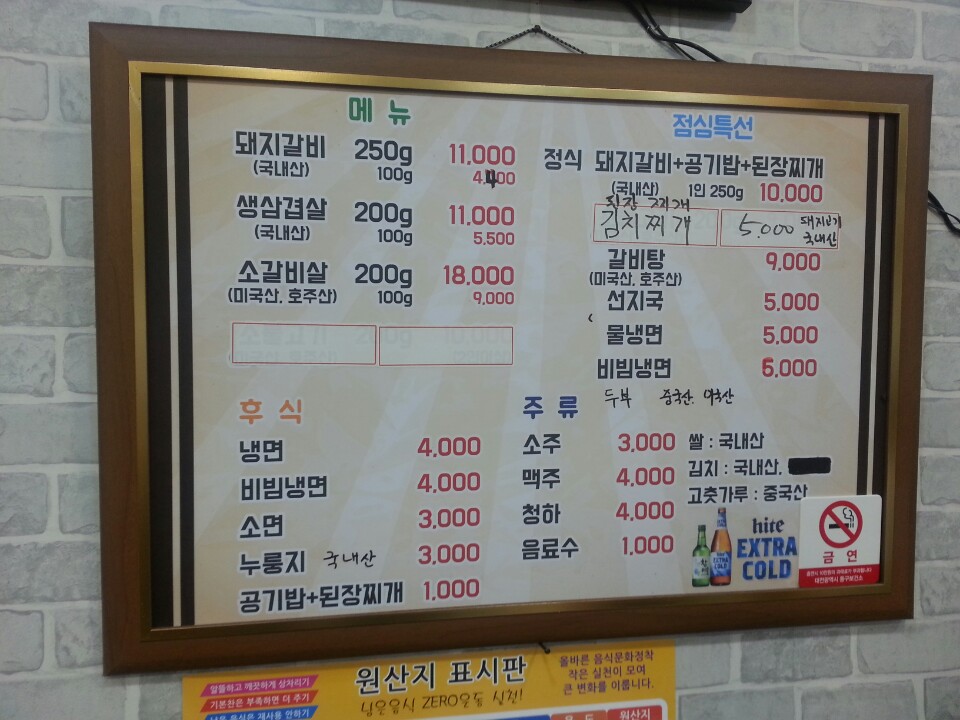 메뉴
돼지갈비 250g 11,000
(국내산) 100g 4,400
생삼겹살 200g 11,000
(국내산) 100g 5,500
소갈비살 200g 18,000
(미국산, 호주산) 100g 9,000
후식
냉면 4,000
비빔냉면 4,000
소면 3,000
누룽지 국내산 3,000
공기밥+된장찌개 1,000
점심특선
정식 돼지갈비+공기밥+된장찌개
(국내산) 1인 250g 10,000
된장 찌개
김치찌개 5.000 돼지고기
국내산
갈비탕 9,000
(미국산, 호주산)
선지국 5,000
물냉면 5,000
비빔냉면 6,000
두부 중국산. 미국산
주류
소주 3,000
맥주 4,000
청하 4,000
음료수 1,000
쌀 : 국내산
김치 : 국내산,
고춧가루 : 중국산
hite
EXTRA
COLD
금연
대전광역시 동구보건소
원산지 표시판
남은음식 ZERO운동 실천!
알뜰하고 깨끗하게 상차리기
기본찬은 부족하면 더 주기
남은 음식은 재사용 안하기
올바른 음식문화정착
작은 실천이 모여
큰 변화를 이룹니다.
원산지